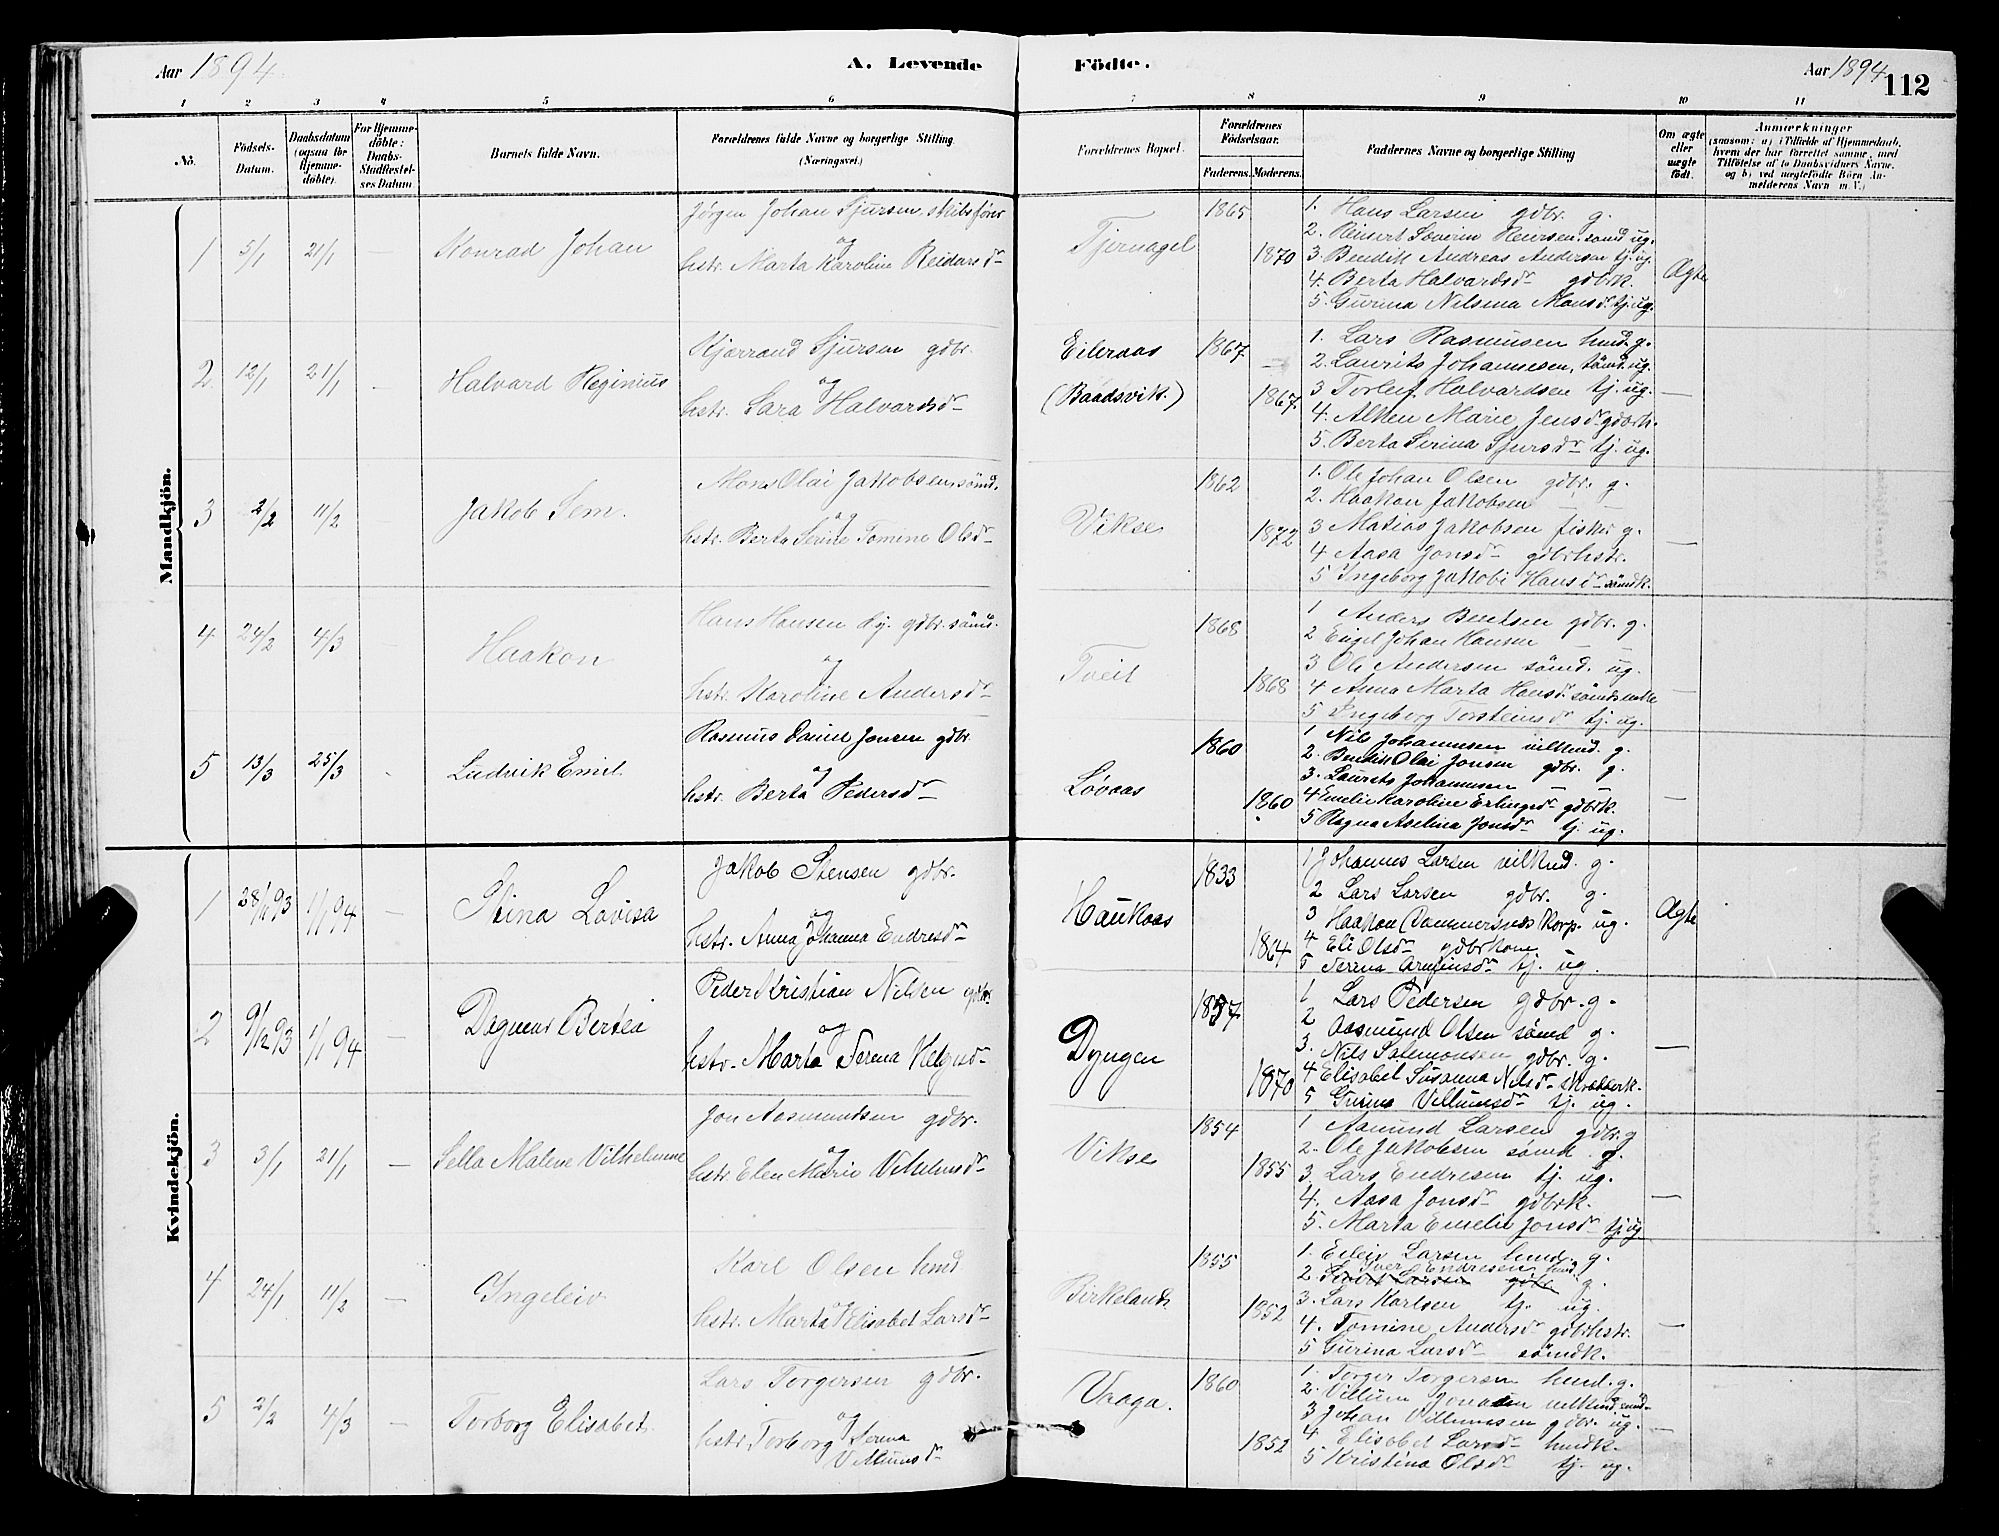 Aar 1894.
A. Levende Födte.
Aar 1894
112
1 2 3 4 5 6 7 8 9 10 11
No.
Födsels-Datum.
Daabsdatum (ogsaa for Hjemme-döbte).
For Hjemme-döbte: Daabs-Stadfæstel-ses Datum
Barnets fulde Navn.
Forældrenes fulde Navne og borgerlige Stilling (Næringsvei.)
Forældrenes Bopæl.
Forældrenes Födselsaar.
Faderens. Moderens.
Faddernes Navne og borgerlige Stilling
Om ægte eller uægte födt.
Anmærkninger
(saasom: a) i Tilfælde af Hjemmedaab, hvem der har forrettet samme, med Tilföielse af to Daabsvidners Navne. og b) ved uægtefödte Börn An-melderens Navn m. V.)
Mandkjön.
1 5/1 21/1 — Konrad Johan
Jørgen Johan Sjursen skibsfører
og
hstr. Marta Karoline Reidarsdr
Tjernagel
1865
1870
1. Hans Larsen gdbr. g.
2. Reinert Severin Reiersen sømd ug.
3. Bendik Andreas Andersen tj. ug.
4. Berta Halvardsdr gdbrk.
5. Gurina Nilsina Monsdr tj. ug.
Ægte
2 12/1 21/1 - Halvard Reginius
Kjærrand Sjursen gdbr.
og
hstr. Sara Halvardsdr
Eileraas
(Baadsvik.)
1867
1867.
1. Lars Rasmusen husd. g.
2. Laurits Johannesen, sømd. ug.
3 Torleif Halvardsen tj. ug.
4. Alken Marie Jensdr gdbrk.
5. Berta Serina Sjursdr tj. ug.
—
3 2/2 11/2 Jakob Sem.
Mons Olai Jakobsen sömd.
og
hstr. Berta Serine Tomine Olsdr
Vikse
1862
1872
1. Ole Johan Olsen gdbr. g.
2. Haakon Jakobsen — —
3 Matias Jakobsen fisker g.
4 Aasa Jonsdr gdbrhstr.
5 Ingeborg Jakobi Hansdr sømdk.
—
4 24/2 4/3 Haakon
Hans Hansen Ly. gdbr. sömd.
og
hstr. Karoline Andersdr
Tveit
1868
1868
1 Anders Bentsen gdbr. g.
2 Engel Johan Hansen — —
3 Ole Andersen sömd. ug.
4 Anna Marta Hansdr sömdsenke
5 Ingeborg Torsteinsdr tj. ug.
—
5 13/3 25/3 - Ludvik Emil
Rasmus Daniel Jonsen gdbr
og
hstr. Berta Pedersdr
Løvaas
1860
1860
1 Nils Johannesen vilkmd. g.
2. Bendik Olai Jonsen gdbr. g.
3. Laurits Johannesen — —
4 Emelie Karoline Erlingsdr gdbrk.
5 Ragna Aselina Jonsdr tj. ug.
—
Kvindekjön.
1 28/1 93 1/1 94 — Stina Lovisa
Jakob Stensen gdbr.
og
hstr. Anna Johanna Endresdr
Haukaas
1833
1864
1 Johannes Larsen vilkmd. g.
2 Lars Larsen gdbr. g.
3 Haakon korp. ug.
4 Eli Olsdr gdbrkone
5 Serina tj. ug.
Ægte
2 9/12 93 1/1 94 — Dagmar Bertea
Peder Kristian Nilsen gdbr.
og
hstr. Marta Serina Helgesdr
Dyngen
1857
1870
1 Lars Pedersen gdbr. g.
2 Aasmund Olsen sömd g.
3. Nils Salemonsen gdbr. g.
4 Elisabet Susanna Nilsdr skrædderk.
5 Gurine Villumsdr tj. ug.
—
3 3/1 21/1 — Sella Malene Vilhelmine
Jon Aasmundsen gdbr.
og
hstr. Elen Marie Vilhelmsdr
Vikse
1854
1855
1 Asmund Larsen gdbr. g
2. Ole Jakobsen sömd. g.
3, Lars Endresen tj. ug.
4. Aasa Jonsdr gdbrk.
5. Marta Emelie Jonsdr tj. ug.
—
4 24/1 11/2 — Ingeleiv
Karl Olsen husd
og
hstr. Marta Elisabet Larsdr
Birkeland
1855
1852
1. Eileiv Larsen husd. g.
2 Iver Endresen husd. g.
3. Lars Karlsen tj. ug.
4. Tomine Andersdr gdbrhstr.
5 Gurina Larsdr sömdk.
—
5 2/2 4/3 — Torborg Elisabet.
Lars Torgersen gdbr.
og
hstr. Torborg Serina
Villumsdr
Vaaga.
1860
1852
1. Torger Torgersen husd. g.
2. Villum Jonasen vilkmd. enkd.
3 Johan Villumsen gdbr. ug.
4 Elisabet Larsdr husdk.
5 Kristina Olsdr tj. ug.
—